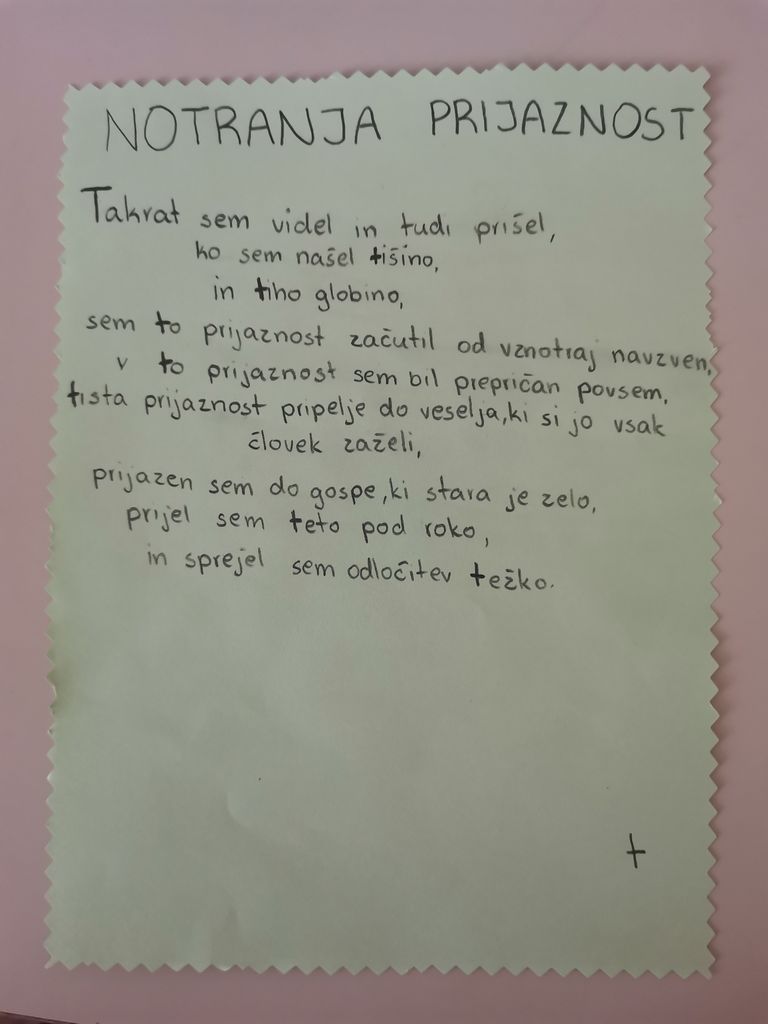 NOTRANJA PRIJAZNOST
Takrat sem videl in tudi prišel,
ko sem našel tišino,
in tiho globino,
sem to prijaznost začutil od vznotraj navzven,
v to prijaznost sem bil prepričan povsem,
tista prijaznost pripelje do veselja, ki si jo vsak
človek zaželi,
prijazen sem do gospe, ki stara je zelo,
prijel sem teto pod roko,
in sprejel sem odločitev težko.
t